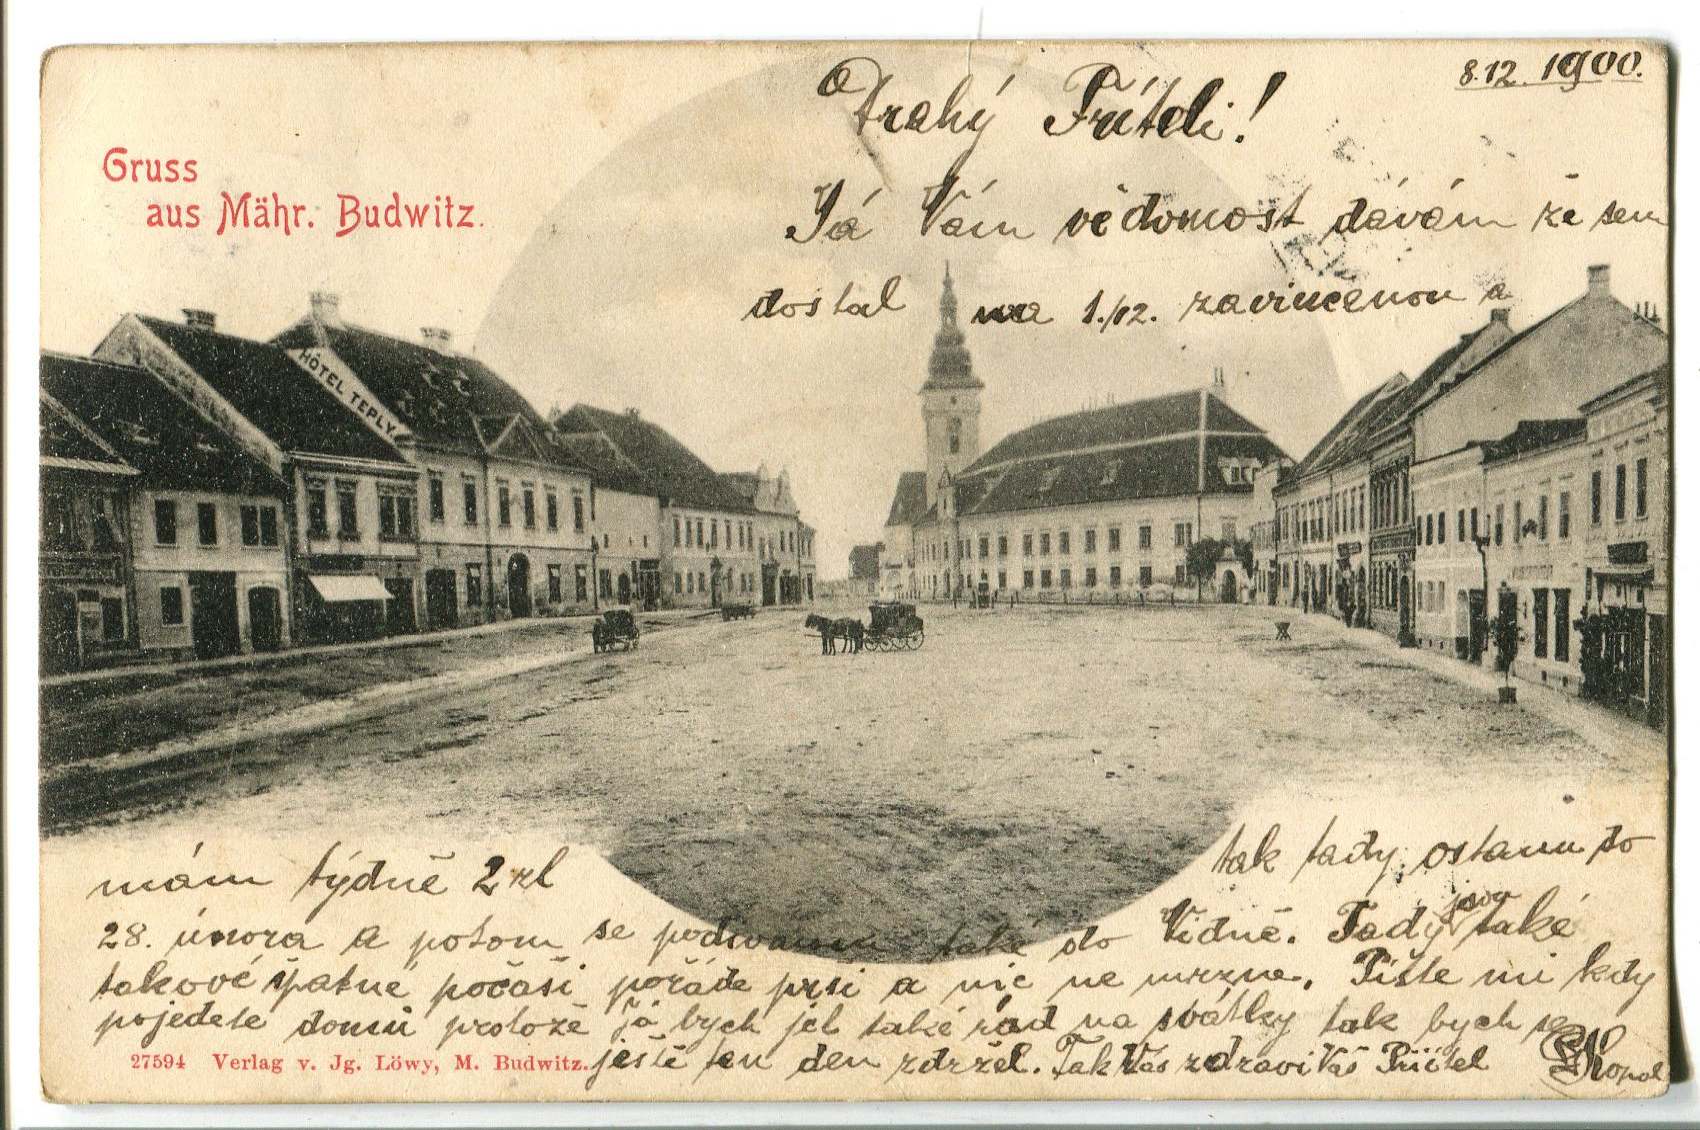 8.12. 1900.
Drahý Příteli!
Gruss
aus Mähr. Budwitz.
Já Vám vědomost dávám že sem
dostal na 1./12. zavinčenou a
HÔTEL TEPLY
mám týdně 2 zl
tak tady ostanu do
28. února a potom se podívám také do Vídně. Tady jsou také
takové špatné počaši pořáde prši a nic ne mrzne. Pište mi kdy
pojedete domů protože já bych jel také rád na svátky tak bych se
ještě ten den zdržel. Tak Vás zdravi Váš Přítel
27594 Verlag v. Jg. Löwy, M. Budwitz.